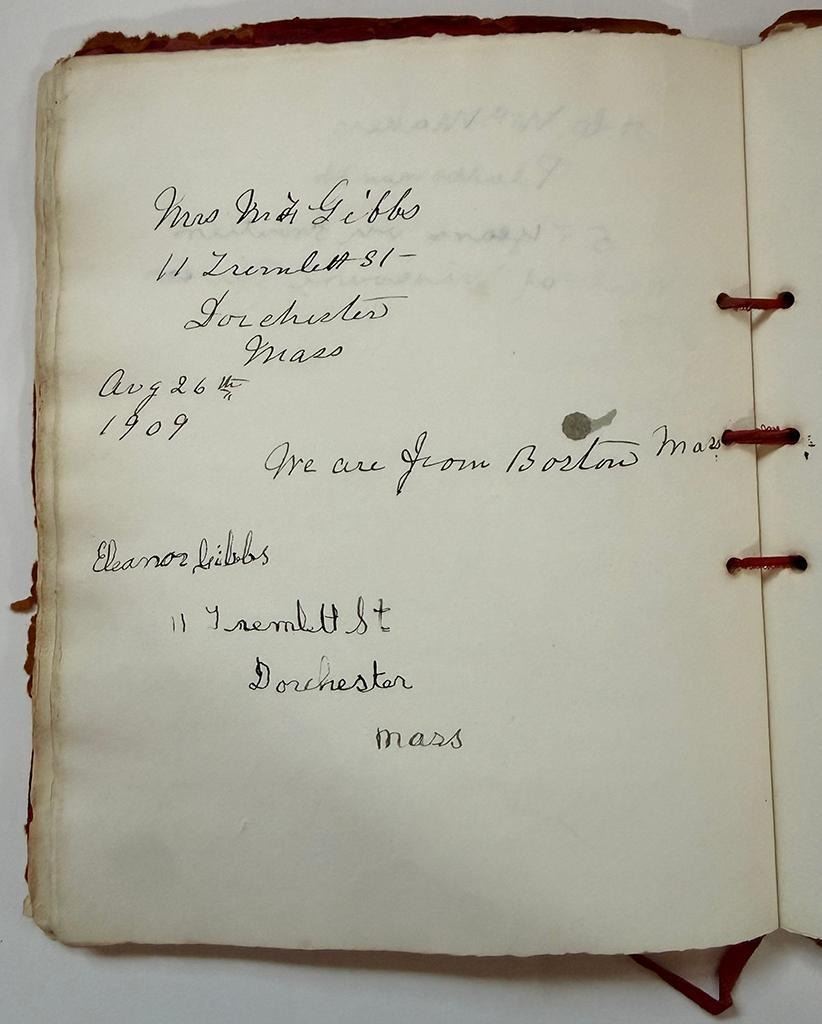 Mrs M F Gibbs
11 Tremlett St
Dorchester
Mass
Aug 26th
1909
We are from Boston Mass
Eleanor Gibbs
11 Tremlett St
Dorchester
Mass